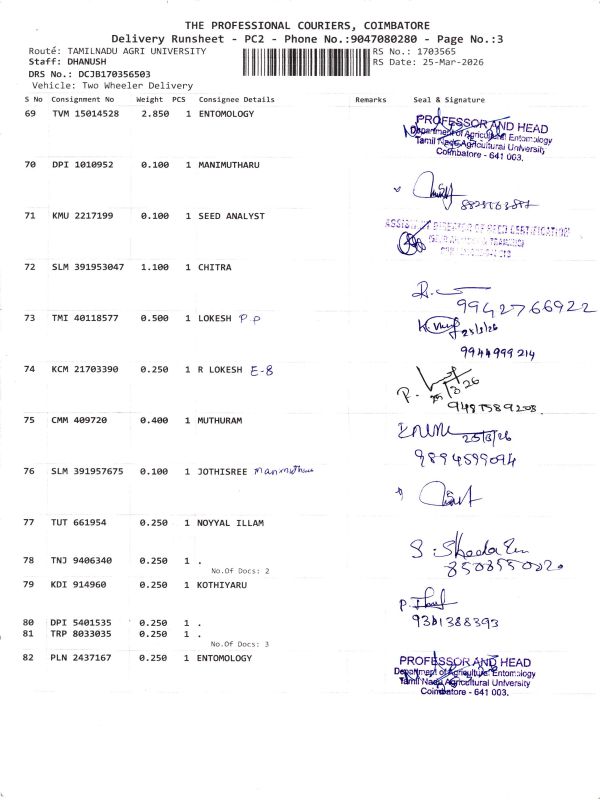 THE PROFESSIONAL COURIERS, COIMBATORE
Delivery Runsheet - PC2 - Phone No.:9047080280 - Page No.:3
Route: TAMILNADU AGRI UNIVERSITY RS No.: 1703565
Staff: DHANUSH RS Date: 25-Mar-2026
DRS No.: DCJB170356503
Vehicle: Two Wheeler Delivery
S No Consignment No Weight PCS Consignee Details Remarks Seal & Signature
69 TVM 15014528 2.850 1 ENTOMOLOGY
PROFESSOR AND HEAD
Department of Agricultural Entomology
Tamil Nadu Agricultural University
Coimbatore - 641 003.
70 DPI 1010952 0.100 1 MANIMUTHARU
71 KMU 2217199 0.100 1 SEED ANALYST
72 SLM 391953047 1.100 1 CHITRA
9942766922
73 TMI 40118577 0.500 1 LOKESH P.P
25/3/26
9944999214
74 KCM 21703390 0.250 1 R LOKESH E-8
25/3/26
75 CMM 409720 0.400 1 MUTHURAM
25/3/26
9894599094
76 SLM 391957675 0.100 1 JOTHISREE
77 TUT 661954 0.250 1 NOYYAL ILLAM
78 TNJ 9406340 0.250 1 .
No.Of Docs: 2
79 KDI 914960 0.250 1 KOTHIYARU
9361388393
80 DPI 5401535 0.250 1 .
81 TRP 8033035 0.250 1 .
No.Of Docs: 3
82 PLN 2437167 0.250 1 ENTOMOLOGY
PROFESSOR AND HEAD
Department of Agricultural Entomology
Tamil Nadu Agricultural University
Coimbatore - 641 003.